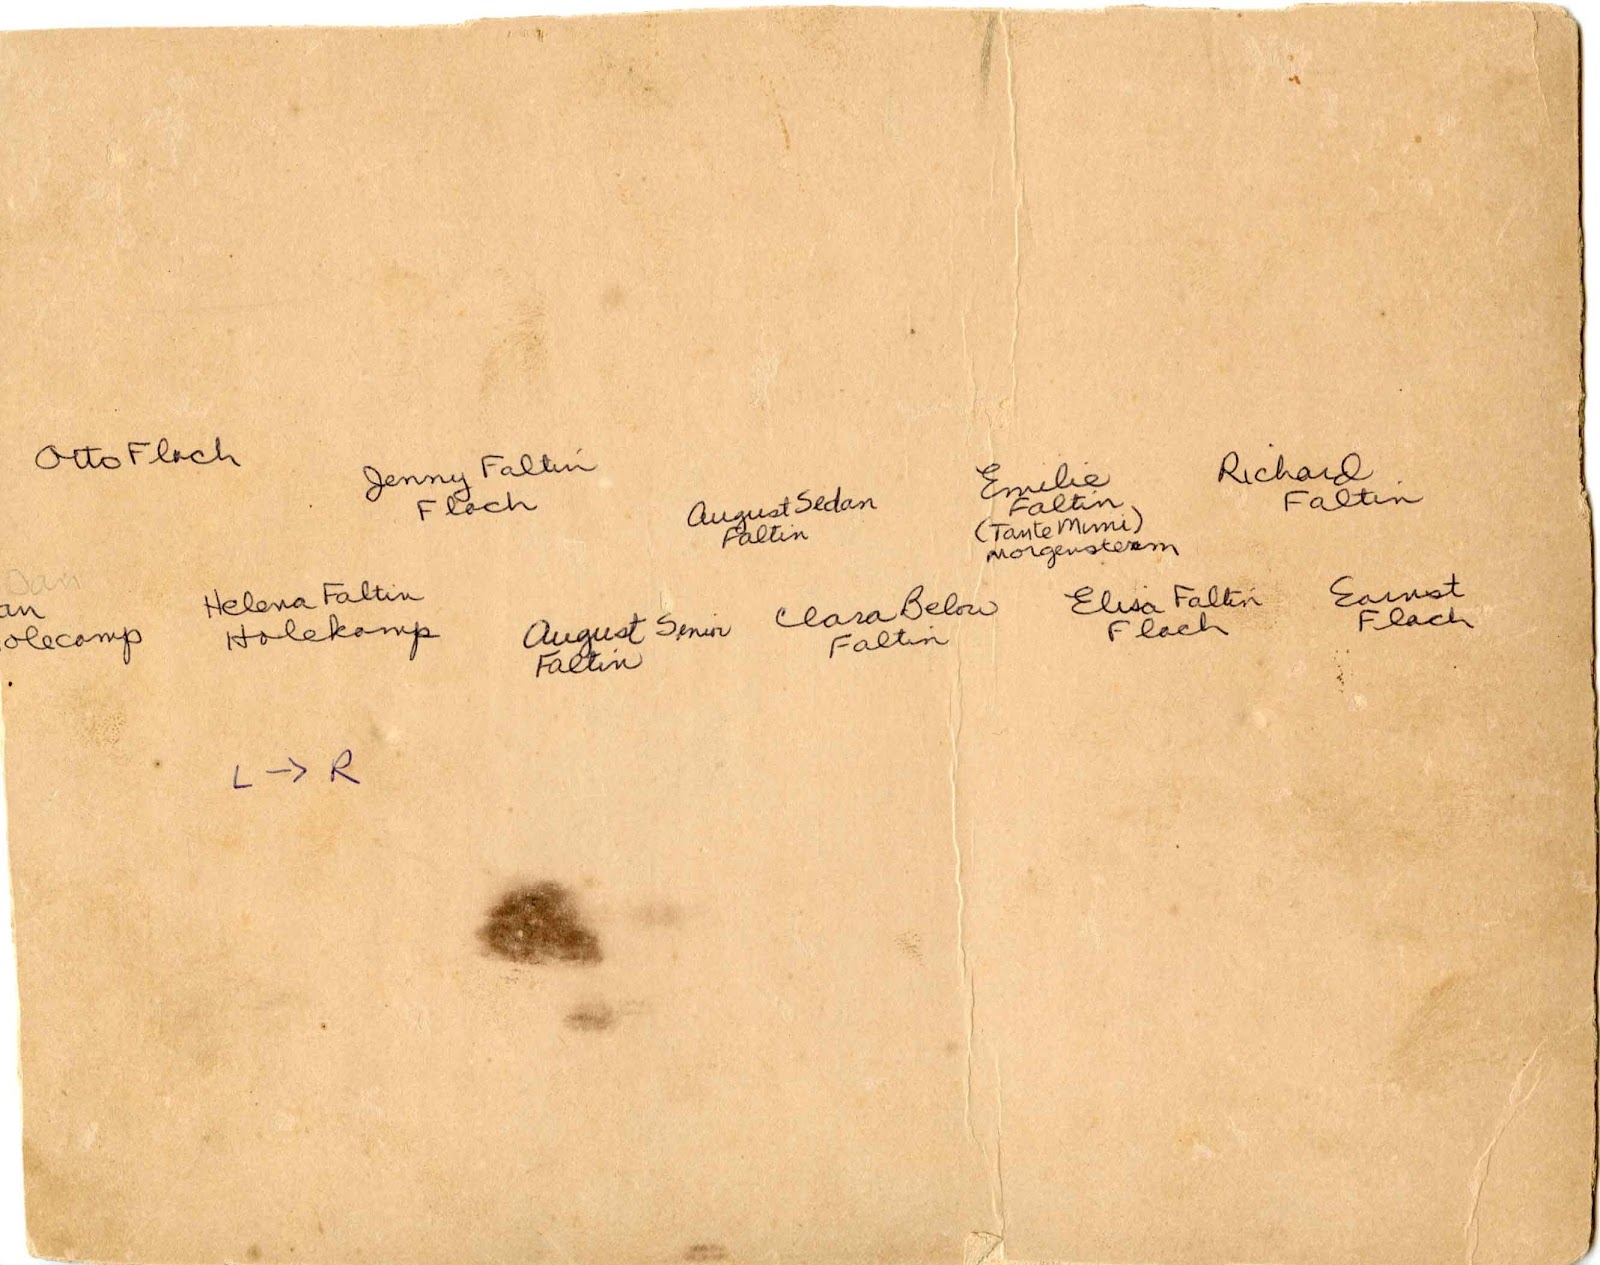 Otto Flach
Jenny Faltin
Flach
August Sedan
Faltin
Emilie
Faltin
(Tante Mimi)
Morgensterm
Richard
Faltin
Dan
an
olecamp
Helena Faltin
Holekamp
August Senior
Faltin
Clara Below
Faltin
Elisa Faltin
Flach
Earnst
Flach
L → R